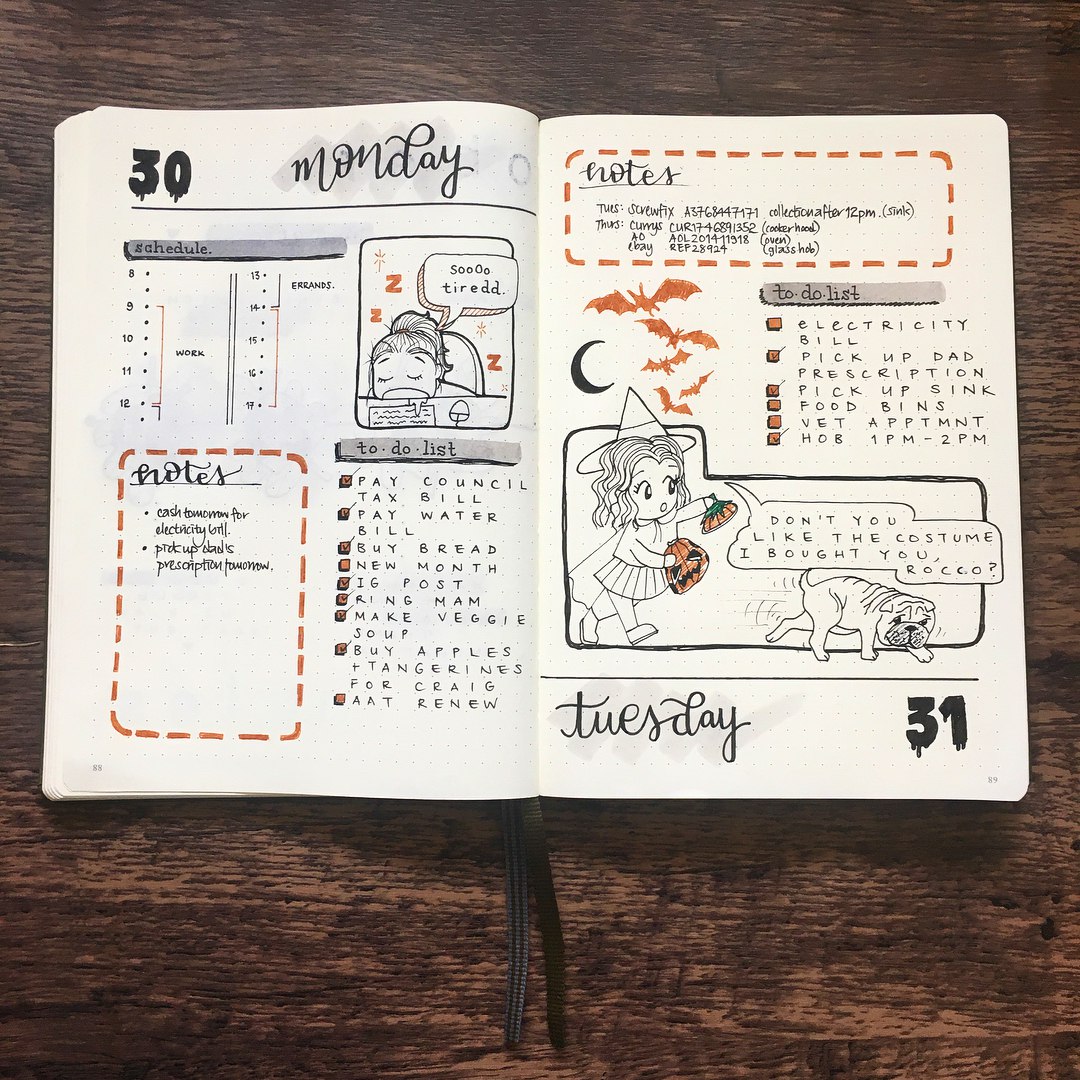 30 monday
schedule.
8
9
10
11
12
WORK
13
14
15
16
17
ERRANDS.
soooo
tiredd.
z
z
z
notes
• cash tomorrow for
electricity bill.
• pick up dad's
prescription tomorrow.
to·do·list
PAY COUNCIL
TAX BILL
PAY WATER
BILL
BUY BREAD
NEW MONTH
IG POST
RING MAM
MAKE VEGGIE
SOUP
BUY APPLES
+TANGERINES
FOR CRAIG
AAT RENEW
88
notes
Tues: Screwfix A3768447171 collection after 12pm. (sink)
Thurs: Currys CUR1746891352 (cooker hood)
AO AOL201411918 (oven)
ebay REF28924 (glass hob)
to·do·list
ELECTRICITY
BILL
PICK UP DAD
PRESCRIPTION
PICK UP SINK
FOOD BINS
VET APPTMNT
HOB 1PM-2PM
DON'T YOU
LIKE THE COSTUME
I BOUGHT YOU,
ROCCO?
tuesday 31
89